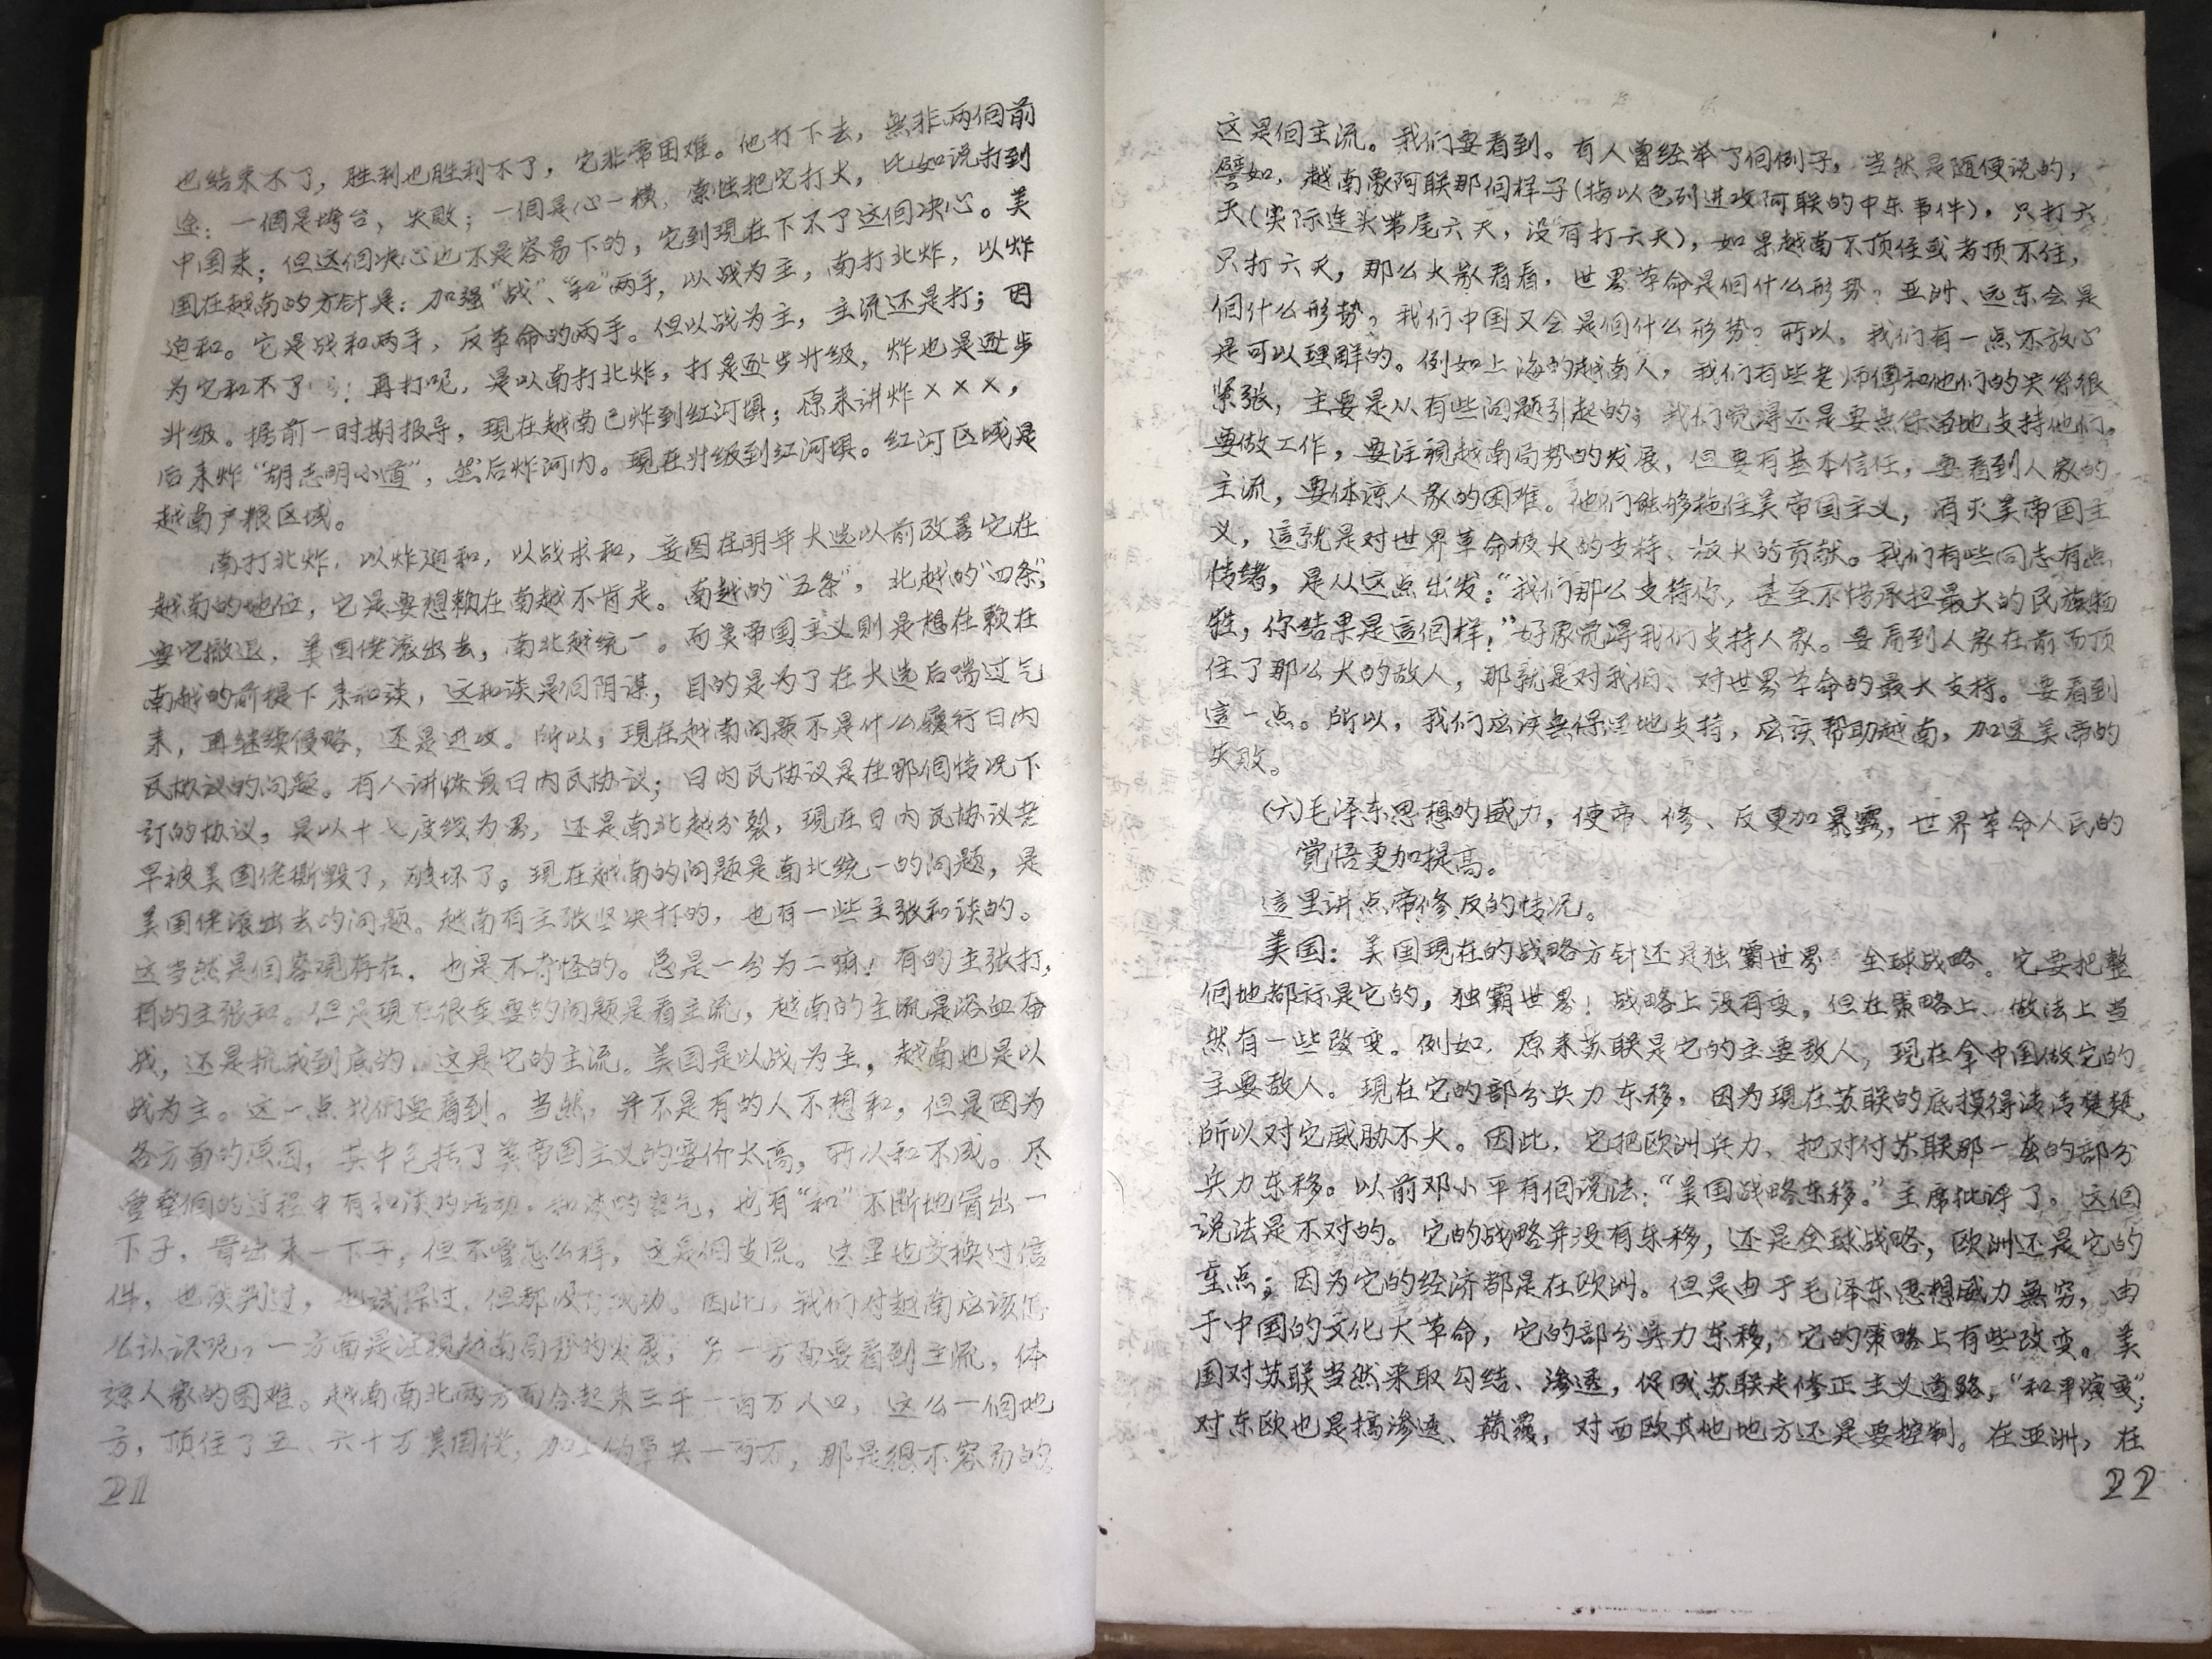 也结束不了，胜利也胜利不了，它非常困难。他打下去，無非两個前
途：一個是垮台，失败；一個是心一横，索性把它打大，比如说打到
中国来；但这個决心也不是容易下的，它到現在下不了这個决心。美
国在越南的方针是：加强“战”、“和”两手，以战为主，南打北炸，以炸
迫和。它是战和两手，反革命的两手。但以战为主，主流还是打；因
为它和不了！再打呢，是以南打北炸，打是逐步升级，炸也是逐步
升级。据前一时期报导，現在越南已炸到红河埧；原来讲炸×××，
后来炸“胡志明小道”，然后炸河内。現在升级到红河埧。红河区域是
越南产粮区域。
南打北炸，以炸迫和，以战求和，妄图在明年大选以前改善它在
越南的地位，它是要想賴在南越不肯走。南越的“五条”，北越的“四条”，
要它撤退，美国佬滚出去，南北越统一。而美帝国主义則是想在赖在
南越的前提下来和谈，这和谈是個阴谋，目的是为了在大选后喘过气
来，再继续侵略，还是进攻。所以，現在越南问题不是什么履行日内
瓦协议的问题。有人讲恢复日内瓦协议；日内瓦协议是在那個情况下
訂的协议，是以十七度线为界，还是南北越分裂，現在日内瓦协议老
早被美国佬撕毁了，破坏了。現在越南的问题是南北统一的问题，是
美国佬滚出去的问题。越南有主张坚决打的，也有一些主张和谈的。
这当然是個客观存在，也是不奇怪的。总是一分为二嘛！有的主张打，
有的主张和。但是現在很重要的问题是看主流，越南的主流是浴血奋
战，还是抗战到底的，这是它的主流。美国是以战为主，越南也是以
战为主。这一点我们要看到。当然，并不是有的人不想和，但是因为
各方面的原因，其中包括了美帝国主义的要价太高，所以和不成。尽
管整個的过程中有和谈的活动，和谈的空气，也有“和”不断地冒出一
下子，冒出来一下子，但不管怎么样，这是個支流。这里也交换过信
件，也谈判过，也试探过，但都没有成功。因此，我们对越南应该怎
么认识呢，一方面是注視越南局势的发展；另一方面要看到主流，体
諒人家的困难。越南南北两方面合起来三千一百万人口，这么一個地
方，顶住了五、六十万美国佬，加上伪军共一百万，那是很不容易的。
21
这是個主流。我们要看到。有人曾经举了個例子，当然是随便说的，
譬如，越南象阿联那個样子（指以色列进攻阿联的中东事件），只打六
天（实际连头带尾六天，没有打六天），如果越南不顶住或者顶不住，
只打六天，那么大家看看，世界革命是個什么形势？亚洲、远东会是
個什么形势？我们中国又会是個什么形势？所以，我们有一点不放心
是可以理解的。例如上海的越南人，我们有些老师傅和他们的关系很
紧张，主要是从有些问题引起的；我们觉得还是要点保留地支持他们。
要做工作，要注視越南局势的发展，但要有基本信任，要看到人家的
主流，要体谅人家的困难。他们能够拖住美帝国主义，消灭美帝国主
义，這就是对世界革命极大的支持、极大的贡献。我们有些同志有点
情绪，是从这点出发：“我们那么支持你，甚至不惜承担最大的民族牺
牲，你结果是這個样！”好象觉得我们支持人家。要看到人家在前面顶
住了那么大的敌人，那就是对我们、对世界革命的最大支持。要看到
這一点。所以，我们应该無保留地支持，应该帮助越南，加速美帝的
失败。
（六）毛泽东思想的威力，使帝、修、反更加暴露，世界革命人民的
觉悟更加提高。
這里讲点帝修反的情况。
美国：美国現在的战略方针还是独霸世界　全球战略。它要把整
個地都标是它的，独霸世界！战略上没有变，但在策略上、做法上当
然有一些改变。例如，原来苏联是它的主要敌人，現在拿中国做它的
主要敌人。現在它的部分兵力东移，因为現在苏联的底摸得清清楚楚，
所以对它威胁不大。因此，它把欧洲兵力、把对付苏联那一套的部分
兵力东移。以前邓小平有個说法：“美国战略东移。”主席批评了。这個
说法是不对的。它的战略并没有东移，还是全球战略，欧洲还是它的
重点；因为它的经济都是在欧洲。但是由于毛泽东思想威力無穷，由
于中国的文化大革命，它的部分兵力东移，它的策略上有些改变。美
国对苏联当然采取勾结、渗透，促成苏联走修正主义道路，“和平演变”；
对东欧也是搞渗透、颠覆，对西欧其他地方还是要控制。在亚洲，在
22